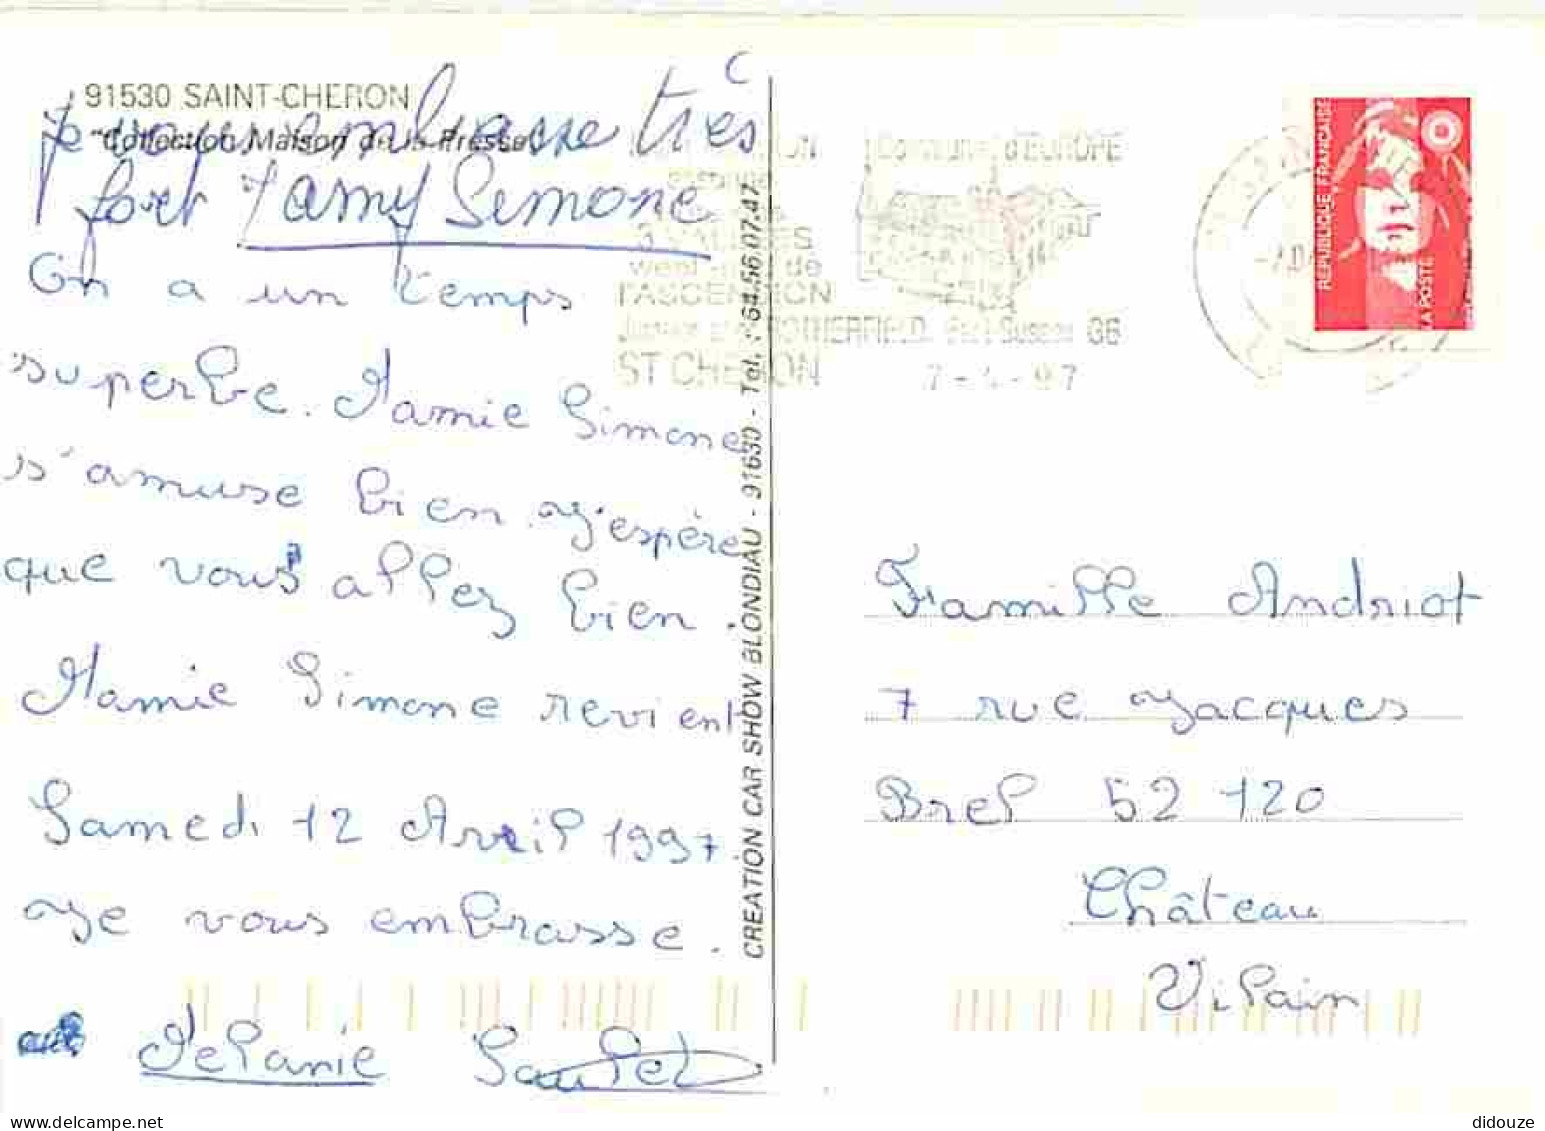 91530 SAINT-CHERON
"Collection Maison de la Presse"
je vous embrasse très
fort Mamy Simone
On a un temps
superbe. Mamie Simone
s'amuse bien. J'espère
que vous allez bien.
Mamie Simone revient
Samedi 12 Avril 1997.
Je vous embrasse.
Melanie Saulet
CREATION CAR SHOW BLONDIAU - 91630 - Tel. : 64.56.07.47
Commune d'EUROPE
3
week end de
l'ASCENSION
ROTHERFIELD East Sussex GB
ST CHERON 7-4-97
REPUBLIQUE FRANÇAISE
LA POSTE
Famille Andriot
7 rue Jacques
Brel 52 120
Château
Vilain
didouze